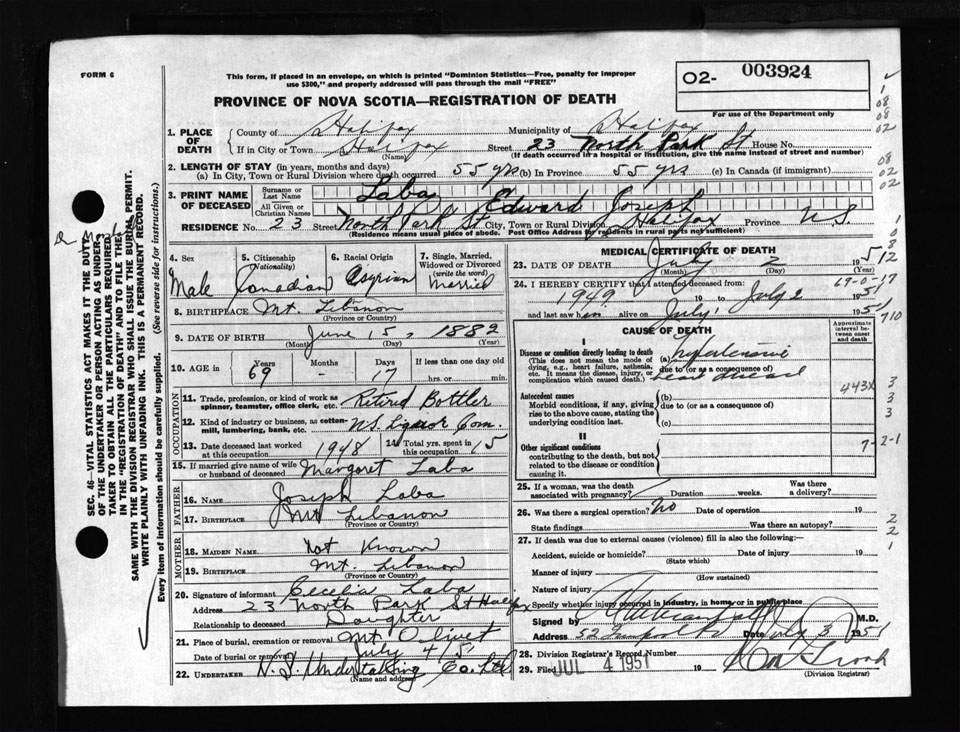 FORM 6
This form, if placed in an envelope, on which is printed "Dominion Statistics—Free, penalty for improper
use $300," and properly addressed will pass through the mail "FREE"
O2- 003924
For use of the Department only
PROVINCE OF NOVA SCOTIA—REGISTRATION OF DEATH
1. PLACE OF DEATH
County of Halifax Municipality of Halifax
If in City or Town Halifax Street 23 North Park St House No.
(Name) (If death occurred in a hospital or institution, give the name instead of street and number)
2. LENGTH OF STAY (in years, months and days)
(a) In City, Town or Rural Division where death occurred 55 yrs (b) In Province 55 yrs (c) In Canada (if immigrant)
3. PRINT NAME OF DECEASED
Surname or Last Name Laba
All Given or Christian Names Edward Joseph
RESIDENCE No. 23 Street North Park St City, Town or Rural Division Halifax Province N.S.
(Residence means usual place of abode. Post Office Address for residents in rural parts not sufficient)
4. Sex Male
5. Citizenship (Nationality) Canadian
6. Racial Origin Assyrian
7. Single, Married, Widowed or Divorced (write the word) Married
8. BIRTHPLACE Mt. Lebanon
(Province or Country)
9. DATE OF BIRTH June 15, 1882
(Month) (Day) (Year)
10. AGE in Years 69 Months - Days 17 If less than one day old
hrs. or min.
OCCUPATION
11. Trade, profession, or kind of work as
spinner, teamster, office clerk, etc. Retired Bottler
12. Kind of industry or business, as cotton-
mill, lumbering, bank, etc. N.S. Liquor Com.
13. Date deceased last worked
at this occupation 1948
14. Total yrs. spent in
this occupation 15
15. If married give name of wife
or husband of deceased Margaret Laba
FATHER
16. NAME Joseph Laba
17. BIRTHPLACE Mt Lebanon
(Province or Country)
MOTHER
18. MAIDEN NAME Not Known
19. BIRTHPLACE Mt. Lebanon
(Province or Country)
20. Signature of informant Cecelia Laba
Address 23 North Park St Halifax
Relationship to deceased Daughter
21. Place of burial, cremation or removal Mt Olivet
Date of burial or removal July 4/51
22. UNDERTAKER N.S. Undertaking Co. Ltd
(Name and address)
MEDICAL CERTIFICATE OF DEATH
23. DATE OF DEATH July 2 1951
(Month) (Day) (Year)
24. I HEREBY CERTIFY that I attended deceased from
1949 19 to July 2 1951
and last saw him alive on July 1 1951
CAUSE OF DEATH
Approximate interval between onset and death
I
Disease or condition directly leading to death
(This does not mean the mode of
dying, e.g., heart failure, asthenia,
etc. It means the disease, injury, or
complication which caused death.)
(a) Hypertensive
due to (or as a consequence of)
heart disease
443X
Antecedent causes
Morbid conditions, if any, giving
rise to the above cause, stating the
underlying condition last.
(b)
due to (or as a consequence of)
(c)
II
Other significant conditions
contributing to the death, but not
related to the disease or condition
causing it.
7-2-1
25. If a woman, was the death
associated with pregnancy? Duration weeks. Was there
a delivery?
26. Was there a surgical operation? No Date of operation 19
State findings Was there an autopsy?
27. If death was due to external causes (violence) fill in also the following:—
Accident, suicide or homicide? Date of injury 19
(State which)
Manner of injury
(How sustained)
Nature of injury
Specify whether injury occurred in industry, in home or in public place
Signed by M.D.
Address 52 Date July 3 1951
28. Division Registrar's Record Number
29. Filed JUL 4 1951 19
(Division Registrar)
SEC. 46—VITAL STATISTICS ACT MAKES IT THE DUTY
OF THE UNDERTAKER OR PERSON ACTING AS UNDER-
TAKER TO OBTAIN ALL THE PARTICULARS REQUIRED
IN THE "REGISTRATION OF DEATH" AND TO FILE THE
SAME WITH THE DIVISION REGISTRAR WHO SHALL ISSUE THE BURIAL PERMIT.
WRITE PLAINLY WITH UNFADING INK. THIS IS A PERMANENT RECORD.
Every item of information should be carefully supplied. (See reverse side for instructions.)
1
08
08
02
08
02
02
0
8
12
69-0-17
710
3
3
3
2
2
1